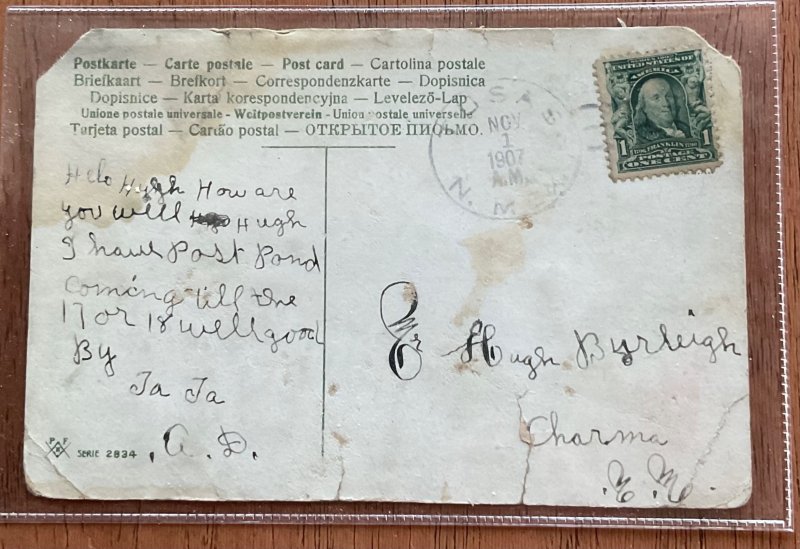 Postkarte — Carte postale — Post card — Cartolina postale
Briefkaart — Brefkort — Correspondenzkarte — Dopisnica
Dopisnice — Karta korespondencyjna — Levelező-Lap
Unione postale universale - Weltpostverein - Union postale universelle
Tarjeta postal — Cartão postal — ОТКРЫТОЕ ПИСЬМО.
NOV
1
1907
A.M.
N. M
UNITED STATES OF
AMERICA
1 FRANKLIN 1
POSTAGE
ONE CENT
Helo Hugh How are
you well Hugh
I have Post Pond
coming till the
17 or 18 well good
By
Ta Ta
A. D.
Mr Hugh Byrleigh
Charma
N. M.
P F
SERIE 2834